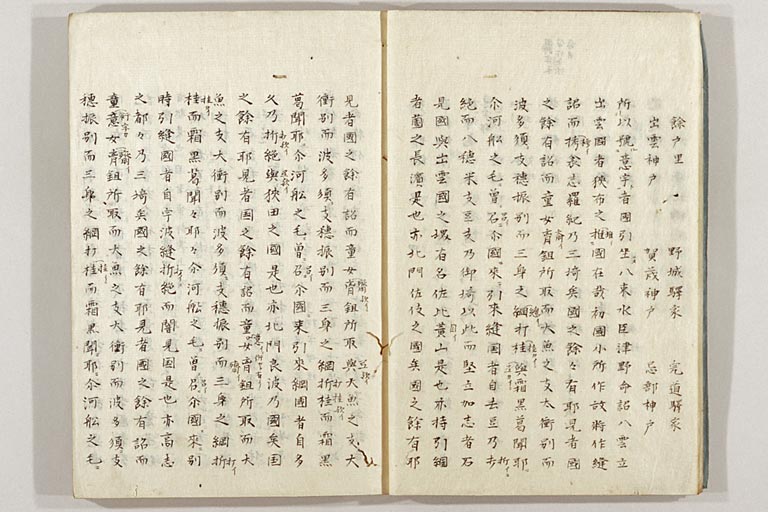 餘戸里 野城驛家 宍道驛家
出雲神戸 賀茂神戸 忌部神戸
所以號意宇者國引坐八束水臣津野命詔八雲立
出雲國者狭布之推國在哉初國小所作故將作縫
詔而栲衾志羅紀乃三埼矣國之餘々有耶見者國
之餘有詔而童女胷鉏所取而大魚之支太衝別而
波多須支穂振別而三身之綱打桂與霜黒葛聞耶
尒河舩之毛曽召尒國來引来縫國者自去豆乃打
絶而八穂米支豆支乃御埼以此而堅立加志者石
見國與出雲國之堺有名佐比賣山是也亦持引綱
者薗之長濱是也亦北門佐伎之國矣國之餘有耶
見者國之餘有詔而童女胷鉏所取與大魚之支大
衝別而波多須支穂振別而三身之綱折桂而霜黒
葛聞耶尒河舩之毛曽召尒國来引來綱國者自多
久乃折絶與狭田之國是也亦北門良波乃國矣国
之餘有耶見者国之餘有詔而童女胷鉏所取而大
魚之支大衝別而波多須支穂振別而三身之綱折
桂而霜黒葛聞々耶々尒河舩之毛曽召尒國來別
時引縫國者自宇波縫折絶而闇見国是也亦高志
之都々乃三埼矣國之餘有耶見者國之餘有詔而
童女胷鉏所取而大魚之支大衝別而波多須支
穂振別而三身之綱打桂而霜黒聞耶尒河舩之毛